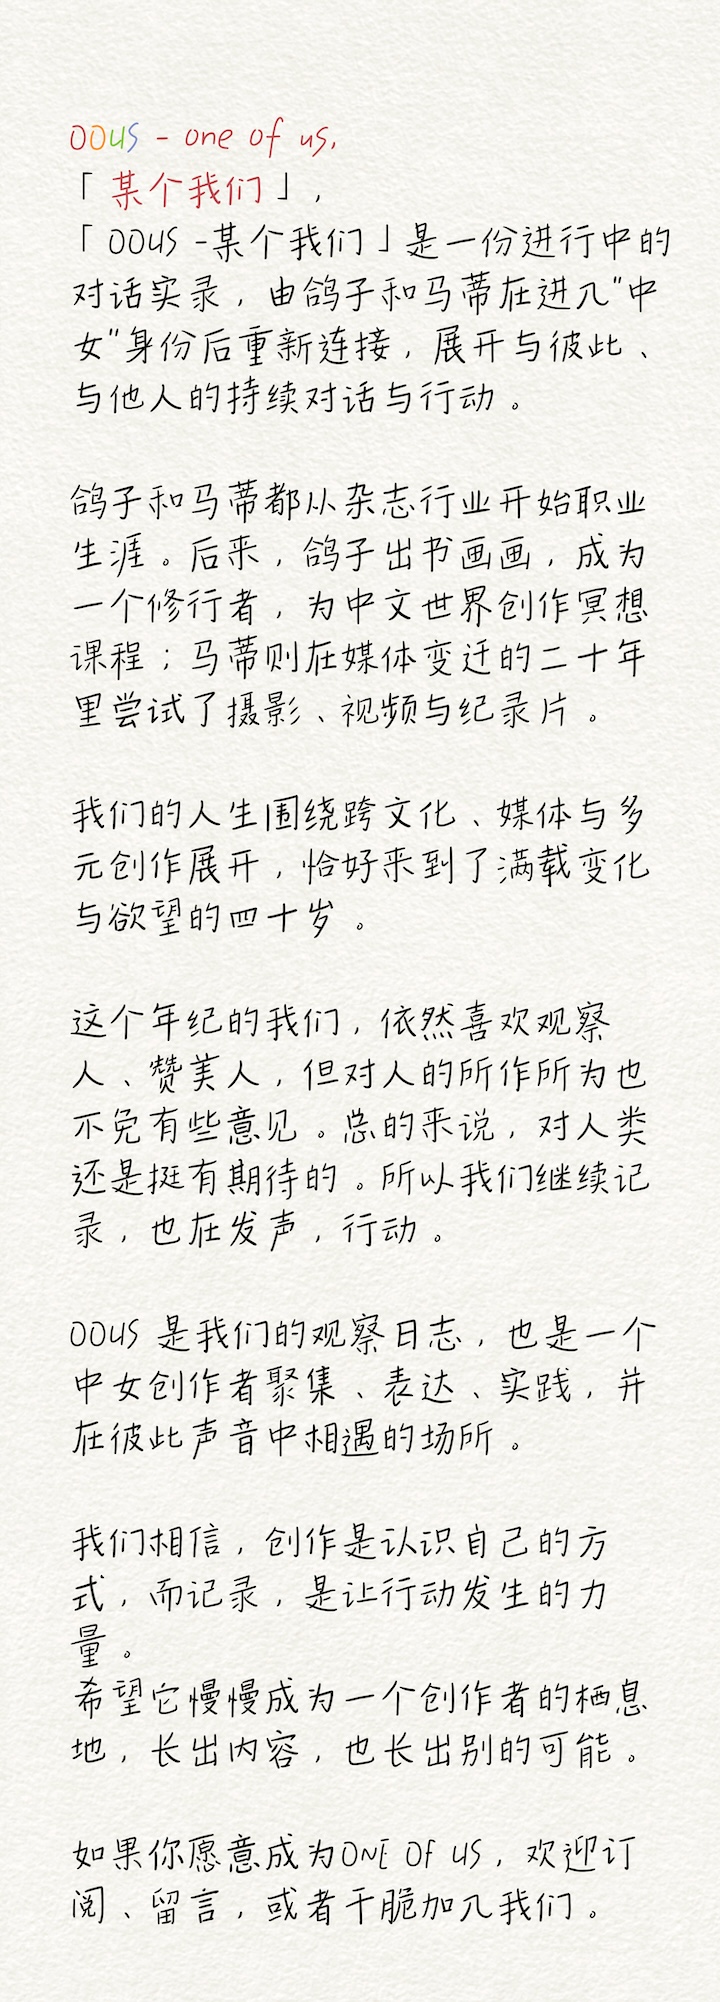 OOUS - one of us,
「某个我们」,
「OOUS -某个我们」是一份进行中的
对话实录，由鸽子和马蒂在进入"中
女"身份后重新连接，展开与彼此、
与他人的持续对话与行动。
鸽子和马蒂都从杂志行业开始职业
生涯。后来，鸽子出书画画，成为
一个修行者，为中文世界创作冥想
课程；马蒂则在媒体变迁的二十年
里尝试了摄影、视频与纪录片。
我们的人生围绕跨文化、媒体与多
元创作展开，恰好来到了满载变化
与欲望的四十岁。
这个年纪的我们，依然喜欢观察
人、赞美人，但对人的所作所为也
不免有些意见。总的来说，对人类
还是挺有期待的。所以我们继续记
录，也在发声，行动。
OOUS 是我们的观察日志，也是一个
中女创作者聚集、表达、实践，并
在彼此声音中相遇的场所。
我们相信，创作是认识自己的方
式，而记录，是让行动发生的力
量。
希望它慢慢成为一个创作者的栖息
地，长出内容，也长出别的可能。
如果你愿意成为ONE OF US，欢迎订
阅、留言，或者干脆加入我们。